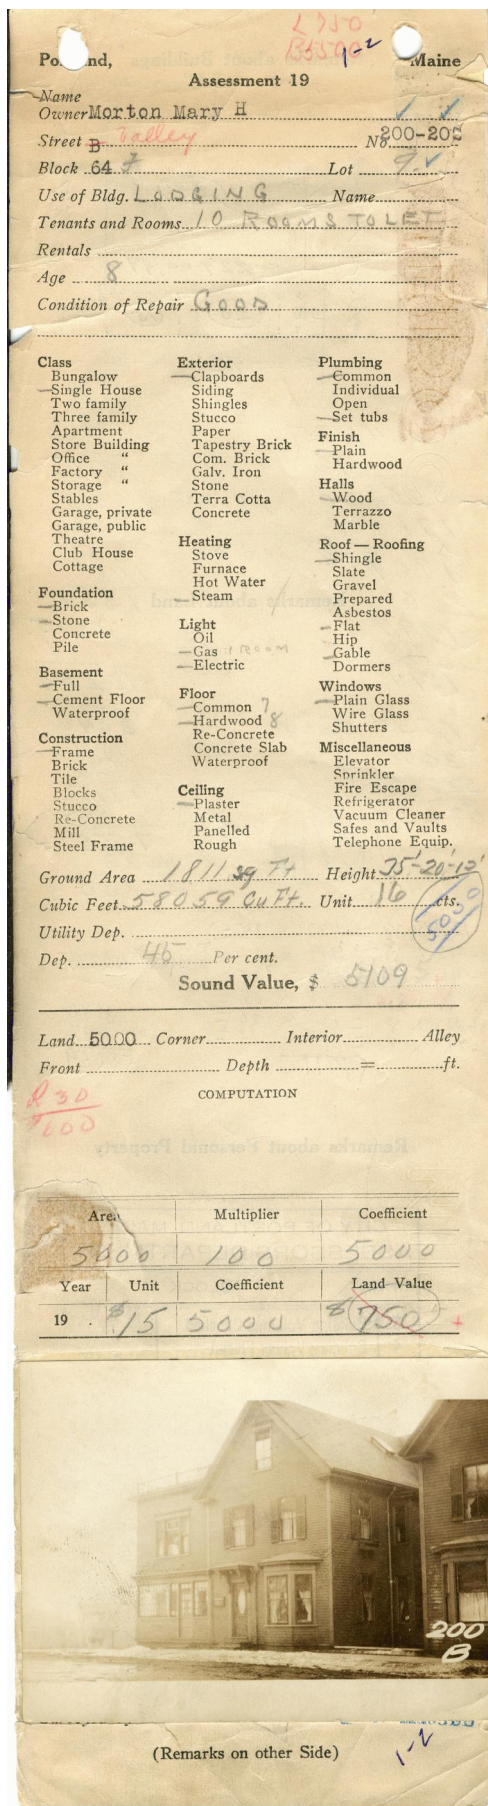 L 750
B5500 1-2
Po nd, Maine
Assessment 19
Name
Owner Morton Mary H
Street B Valley No. 200-202
Block 64 F Lot 9
Use of Bldg. LODGING Name
Tenants and Rooms 10 ROOMS TO LET
Rentals
Age 8
Condition of Repair GOOD
Class
Bungalow
Single House
Two family
Three family
Apartment
Store Building
Office "
Factory "
Storage "
Stables
Garage, private
Garage, public
Theatre
Club House
Cottage
Foundation
Brick
Stone
Concrete
Pile
Basement
Full
Cement Floor
Waterproof
Construction
Frame
Brick
Tile
Blocks
Stucco
Re-Concrete
Mill
Steel Frame
Exterior
Clapboards
Siding
Shingles
Stucco
Paper
Tapestry Brick
Com. Brick
Galv. Iron
Stone
Terra Cotta
Concrete
Heating
Stove
Furnace
Hot Water
Steam
Light
Oil
Gas 1 ROOM
Electric
Floor
Common 7
Hardwood 8
Re-Concrete
Concrete Slab
Waterproof
Ceiling
Plaster
Metal
Panelled
Rough
Plumbing
Common
Individual
Open
Set tubs
Finish
Plain
Hardwood
Halls
Wood
Terrazzo
Marble
Roof — Roofing
Shingle
Slate
Gravel
Prepared
Asbestos
Flat
Hip
Gable
Dormers
Windows
Plain Glass
Wire Glass
Shutters
Miscellaneous
Elevator
Sprinkler
Fire Escape
Refrigerator
Vacuum Cleaner
Safes and Vaults
Telephone Equip.
Ground Area 1811 sq Ft Height 35'-20'-12'
Cubic Feet 58059 Cu Ft. Unit 16 cts.
Utility Dep.
Dep. 45 Per cent.
Sound Value, $ 5109
Land 5000 Corner Interior Alley
Front Depth = ft.
COMPUTATION
Area Multiplier Coefficient
5000 100 5000
Year Unit Coefficient Land Value
19 . $15 5000 $750 +
200
B
(Remarks on other Side)
1-2